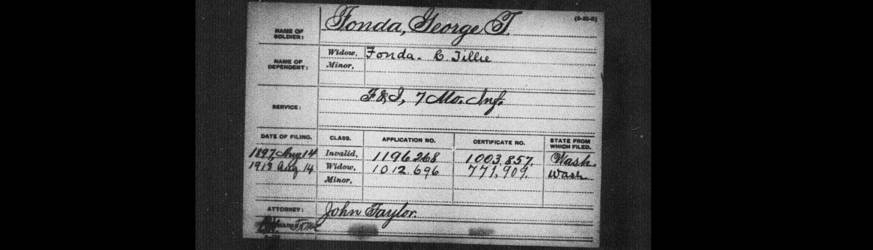 (3-20-B)
NAME OF SOLDIER: Fonda, George T.
NAME OF DEPENDENT: Widow, Fonda. C. Tillie
Minor,
SERVICE: F & I, 7 Mo. Inf.
DATE OF FILING. CLASS. APPLICATION NO. CERTIFICATE NO. STATE FROM WHICH FILED.
1897, Aug 14 Invalid, 1196268 1.003.857. Wash
1913 Aug 14 Widow, 1012.696 771,909. Wash
Minor,
ATTORNEY: John Taylor.